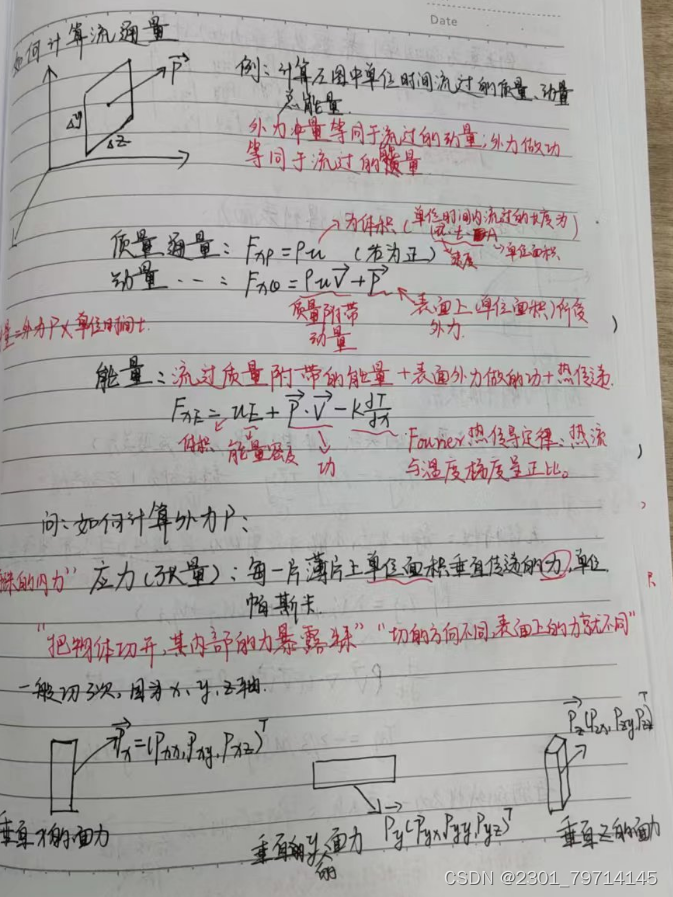 Date
如何计算流通量
P
例：计算左图中单位时间流过的质量、动量
总能量.
Δy
Δz
外力冲量等同于流过的动量；外力做功
等同于流过的能量
为体积（单位时间内流过的长度为）
质量通量：Fxρ=ρu （右为正） 速度 单位面积
动量…：FxQ=ρuV+P
质量附带 表面上（单位面积）所受
动量 外力.
量=外力P×单位时间t.
能量：流过质量附带的能量+表面外力做的功+热传递.
FxE=uE+P·V-k dT/dx
体积 能量密度 功 Fourier热传导定律、热流
与温度梯度呈正比。
问：如何计算外力P：
的内力" 应力（张量）：每一片薄片上单位面积垂直传递的力,单位
帕斯卡.
"把物体切开,其内部的力暴露" "切的方向不同,表面上的力就不同"
一般切3次，因为x,y,z轴.
Px=(Pxx,Pxy,Pxz)T
Pz(Pzx,Pzy,Pzz)T
Py(Pyx,Pyy,Pyz)T
垂直x的面力
垂直的y面力
垂直z的面力
CSDN @2301_79714145